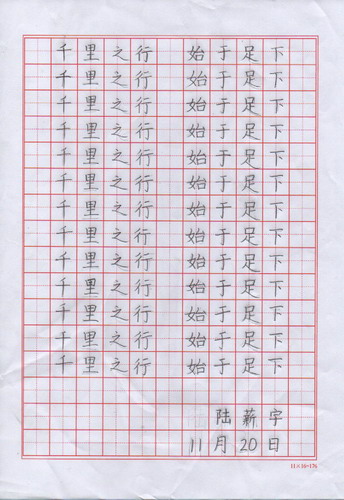 千里之行 始于足下
千里之行 始于足下
千里之行 始于足下
千里之行 始于足下
千里之行 始于足下
千里之行 始于足下
千里之行 始于足下
千里之行 始于足下
千里之行 始于足下
千里之行 始于足下
千里之行 始于足下
千里之行 始于足下
千里之行 始于足下
陆薪宇
11月20日
11×16=176